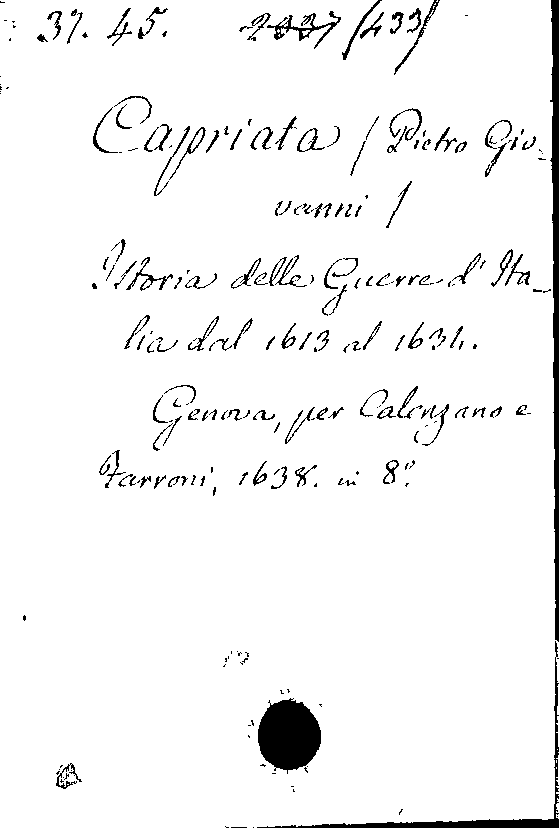 37. 45. 2037 (433)
Capriata / Pietro Gio-
vanni /
Istoria delle Guerre d' Ita-
lia dal 1613 al 1634.
Genova, per Calenzano e
Farroni, 1638. in 8º.